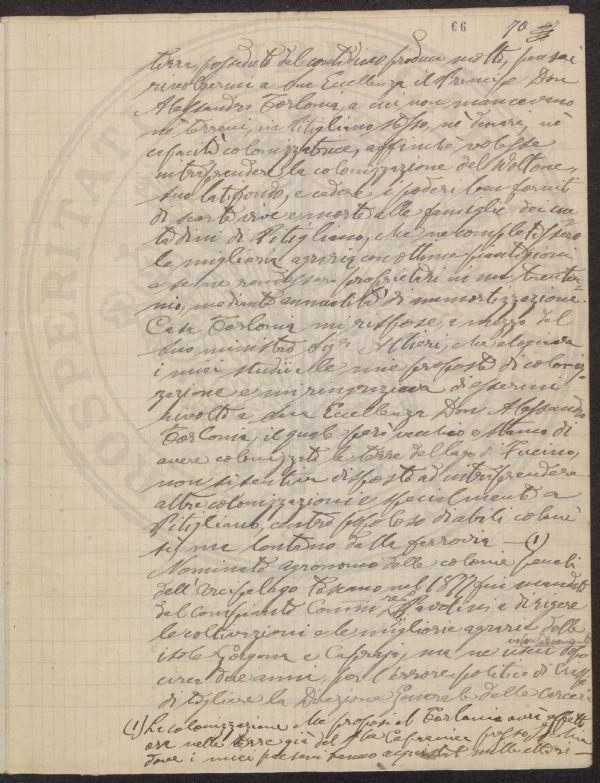 66 70
terre possedute dal contadino produce molto, pensai
rivolgermi a Sua Eccellenza il Principe Don
Alessandro Torlonia, a cui non mancavano
nè terreni, in Pitigliano stesso, nè denari, nè
capacità colonizzatrice, affinchè volesse
intraprendere la colonizzazione del Voltone,
suo latifondo, e cedere i poderi ben forniti
di scorte vive e morte alle famiglie dei con
tadini di Pitigliano, che ne completassero
le migliorie agrarie con ottime piantagioni
e se ne rendessero proprietari in un trenten
nio, mediante annualità di ammortizzazione.
Casa Torlonia mi rispose, a mezzo del
suo ministro Sigr. che elogiava
i miei studii e le mie proposte di coloniz
zazione e mi ringraziava di essermi
rivolto a Sua Eccellenza Don Alessandro
Torlonia, il quale però vecchio e stanco di
avere colonizzato le terre del lago di Fucino,
non si sentiva disposto ad intraprendere
altre colonizzazioni e specialmente a
Pitigliano, centro popoloso di abili coloni
sì, ma lontano dalla ferrovia — (1)
Nominato agronomo delle colonie penali
dell'Arcipelago Toscano nel 1877 fui mandato
dal compianto Comm re a dirigere
le coltivazioni e le migliorie agrarie delle
isole Gorgona e Capraja, ma ne uscii volontariamente dopo
circa due anni, per l'errore politico di Crispi
di togliere la Direzione Generale delle Carceri
(1) La colonizzazione che proposi al Torlonia avrei
ora nelle terre già del
dove i miei paesani hanno acquistati mille ettari —